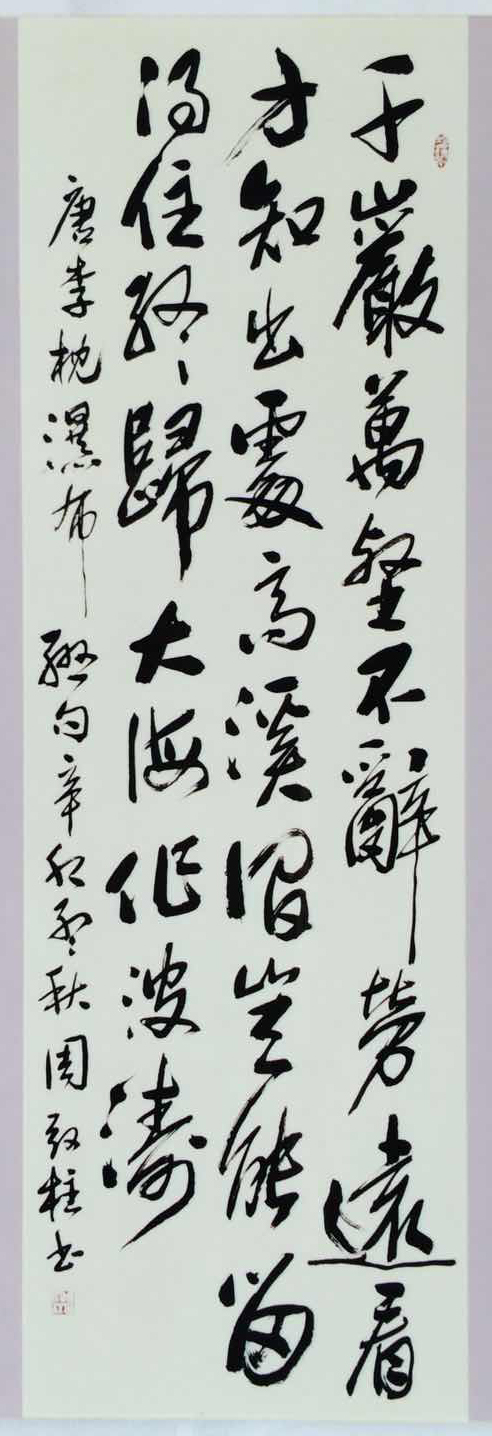 千巖萬壑不辭勞遠看
方知出處高溪澗豈能留
得住終歸大海作波濤
唐李忱瀑布聯句辛卯秋周柱书